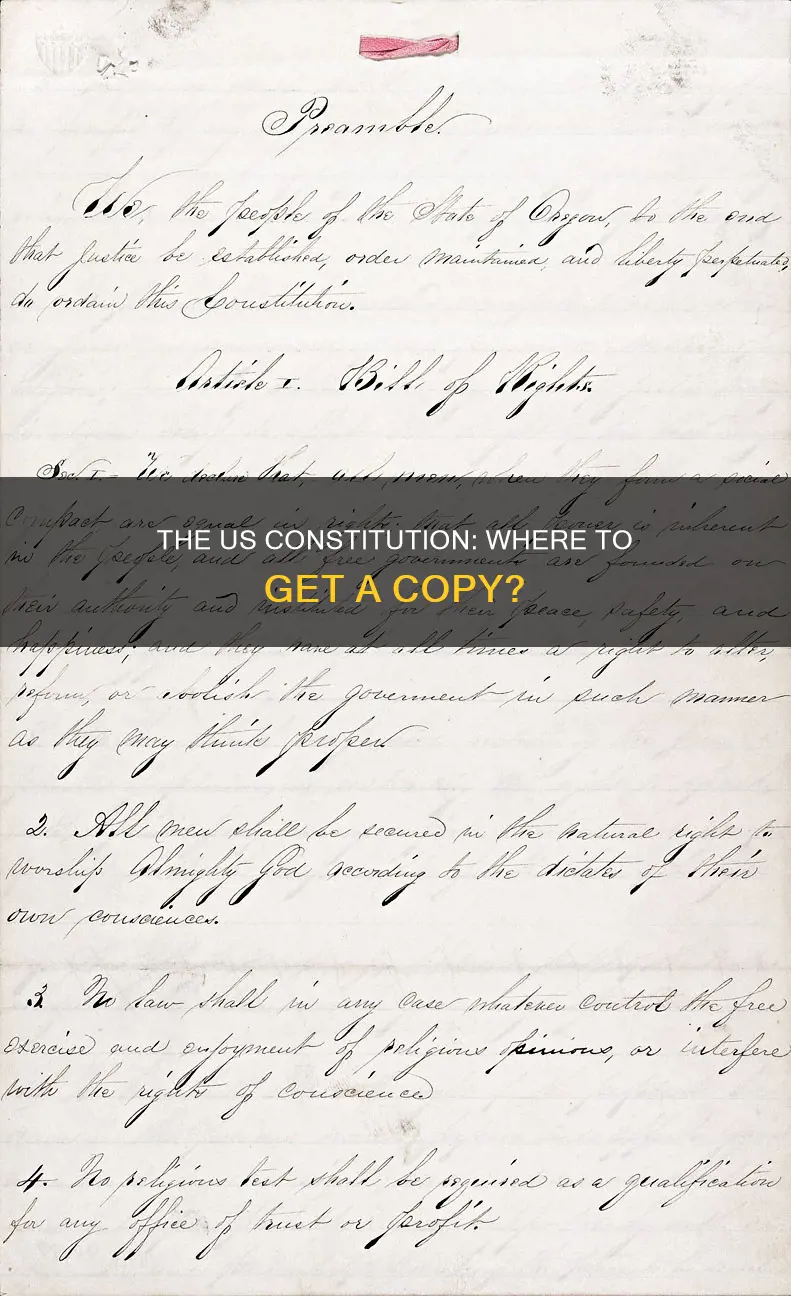 Preamble.
We, the people of the State of Oregon, to the end
that Justice be established, order maintained, and liberty perpetuated,
do ordain this Constitution.
Article I. Bill of Rights.
Sec. I. - We declare that, all men, when they form a social
compact are equal in rights: that all power is inherent
THE US CONSTITUTION: WHERE TO
in the people, and all free governments are founded on
GET A COPY?
their authority and instituted for their peace, safety, and
happiness; and they have at all times a right to alter,
reform, or abolish the goverment in such manner
as they may think proper.
2. All men shall be secured in the natural right to
worship Almighty God according to the dictates of their
own consciences.
3 No law shall in any case whatever control the free
exercise and enjoyment of religious opinions, or interfere
with the rights of conscience
4. No religious test shall be required as a qualification
for any office of trust or profit.